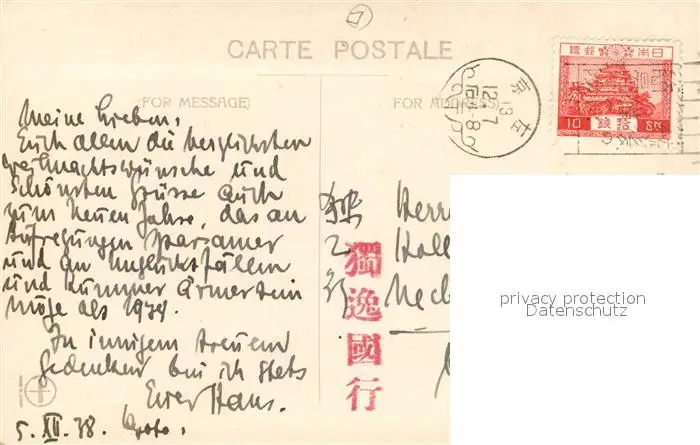 CARTE POSTALE
(FOR MESSAGE)
(FOR ADDRESS)
Meine Lieben:
Euch allen die herzlichsten
Weihnachtswünsche und
schönsten Grüsse auch
zum neuen Jahre, das an
Aufregungen sparsamer
und an Unglücksfällen
und Kummer ärmer sein
möge als 1938.
In innigem treuem
Gedenken bin ich stets
Euer Hans.
5. XII. 38. Kyoto.
大日本帝國郵便
10 拾錢 SN.
13
12.7
Herrn
獨逸國行
privacy protection
Datenschutz